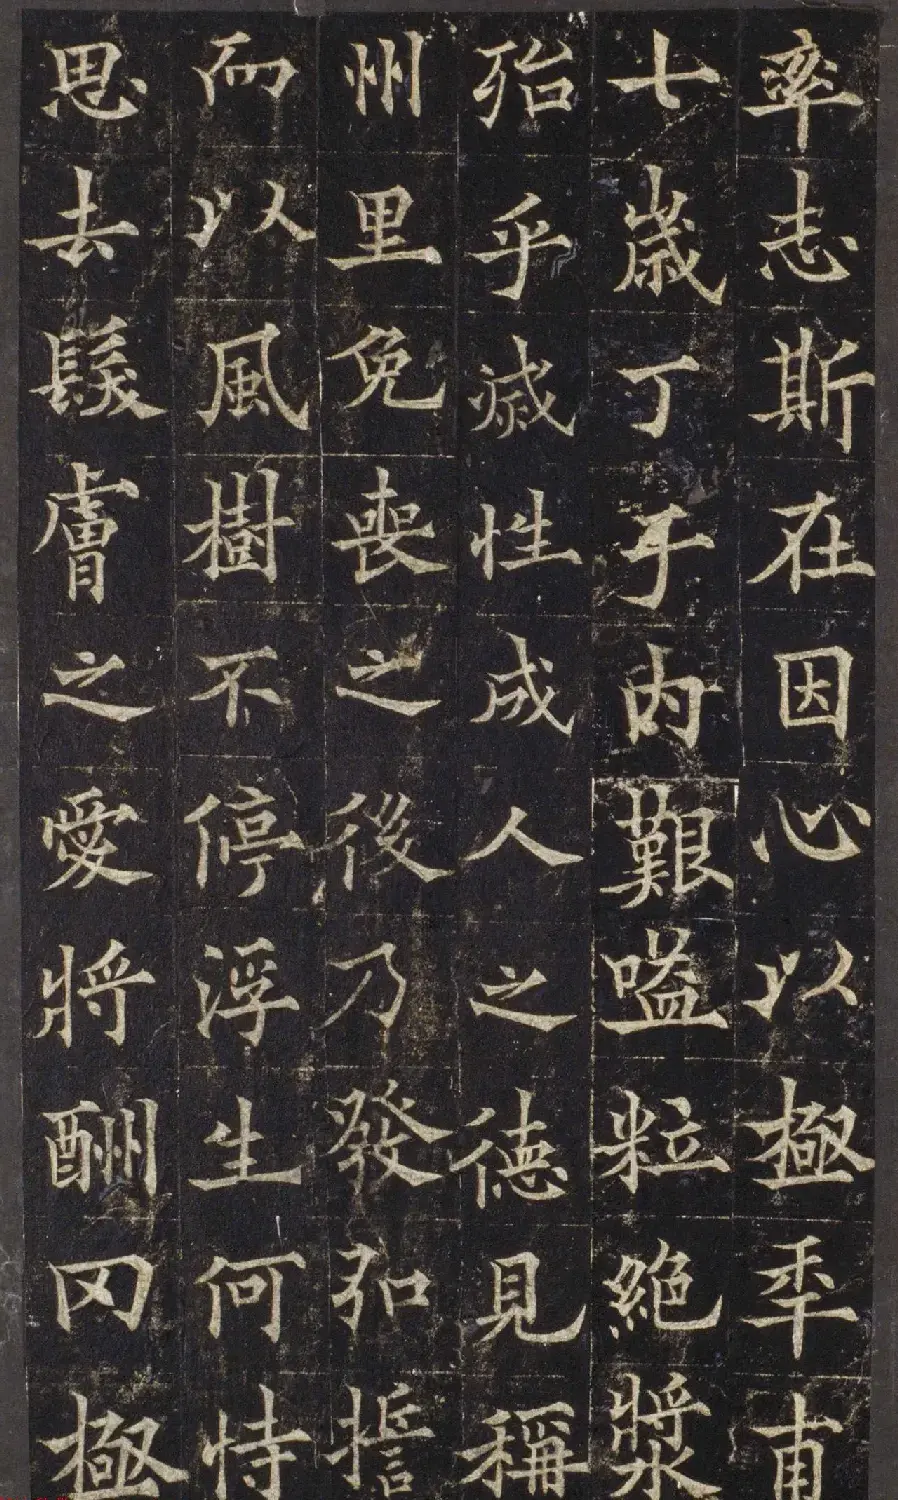 率志斯在因心以極年甫
七歲丁于内艱嗌粒絶漿
殆乎滅性成人之德見稱
州里免喪之後乃發弘誓
而以風樹不停浮生何恃
思去髮膚之愛將酬罔極